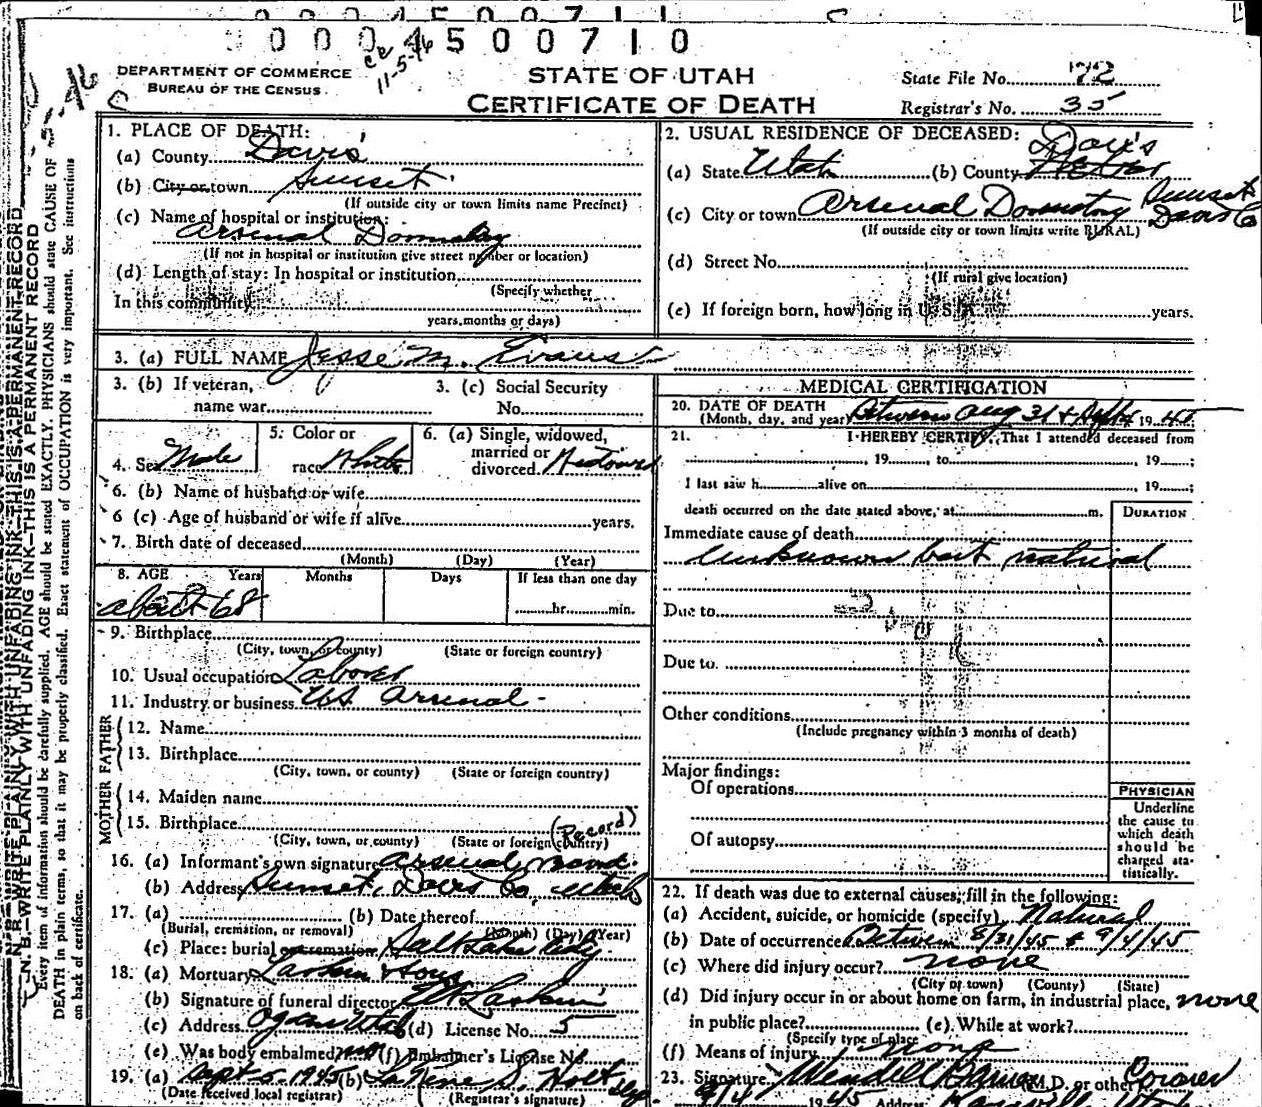 0004500710
ce 11-5-46
DEPARTMENT OF COMMERCE
BUREAU OF THE CENSUS
STATE OF UTAH
CERTIFICATE OF DEATH
State File No. 72
Registrar's No. 35
N. B.—WRITE PLAINLY WITH UNFADING INK—THIS IS A PERMANENT RECORD
Every item of information should be carefully supplied. AGE should be stated EXACTLY. PHYSICIANS should state CAUSE OF
DEATH in plain terms, so that it may be properly classified. Exact statement of OCCUPATION is very important. See instructions
on back of certificate.
1. PLACE OF DEATH:
(a) County Davis
(b) City or town Sunset
(If outside city or town limits name Precinct)
(c) Name of hospital or institution:
Arsenal Dormitory
(If not in hospital or institution give street number or location)
(d) Length of stay: In hospital or institution
(Specify whether
In this community
years, months or days)
2. USUAL RESIDENCE OF DECEASED:
(a) State Utah (b) County Weber Davis
(c) City or town Arsenal Dormitory Sunset Davis Co
(If outside city or town limits write RURAL)
(d) Street No.
(If rural give location)
(e) If foreign born, how long in U. S. A. years.
3. (a) FULL NAME Jesse M. Evans
3. (b) If veteran,
name war
3. (c) Social Security
No.
4. Sex Male
5. Color or
race White
6. (a) Single, widowed,
married or
divorced. Widowed
6. (b) Name of husband or wife
6 (c) Age of husband or wife if alive years.
7. Birth date of deceased
(Month) (Day) (Year)
8. AGE Years Months Days If less than one day
about 68 hr. min.
9. Birthplace
(City, town, or county) (State or foreign country)
10. Usual occupation Laborer
11. Industry or business US Arsenal
FATHER
12. Name
13. Birthplace
(City, town, or county) (State or foreign country)
MOTHER
14. Maiden name
15. Birthplace
(City, town, or county) (State or foreign country)
16. (a) Informant's own signature Arsenal (Record)
(b) Address Sunset, Davis Co, Utah
17. (a) (b) Date thereof
(Burial, cremation, or removal) (Month) (Day) (Year)
(c) Place: burial or cremation Salt Lake City
18. (a) Mortuary Larkin & Sons
(b) Signature of funeral director Larkin
(c) Address Ogden Utah (d) License No. 5
(e) Was body embalmed? (f) Embalmer's License No.
19. (a) Sept 5, 1945 (b) LaRene S. Holt
(Date received local registrar) (Registrar's signature)
MEDICAL CERTIFICATION
20. DATE OF DEATH
(Month, day, and year) Between Aug 31 & Sept 4 1945
21. I HEREBY CERTIFY, That I attended deceased from
, 19 , to , 19 ;
I last saw h alive on , 19 ;
death occurred on the date stated above, at m.
DURATION
Immediate cause of death
Unknown but natural
Due to
Due to
Other conditions
(Include pregnancy within 3 months of death)
Major findings:
Of operations
Of autopsy
PHYSICIAN
Underline
the cause to
which death
should be
charged sta-
tistically.
22. If death was due to external causes, fill in the following:
(a) Accident, suicide, or homicide (specify) Natural
(b) Date of occurrence Between 8/31/45 & 9/4/45
(c) Where did injury occur? none
(City or town) (County) (State)
(d) Did injury occur in or about home on farm, in industrial place, none
in public place? (e) While at work?
(Specify type of place
(f) Means of injury none
23. Signature Wendell M.D. or other Coroner
9/4 1945 Address Kaysville, Utah